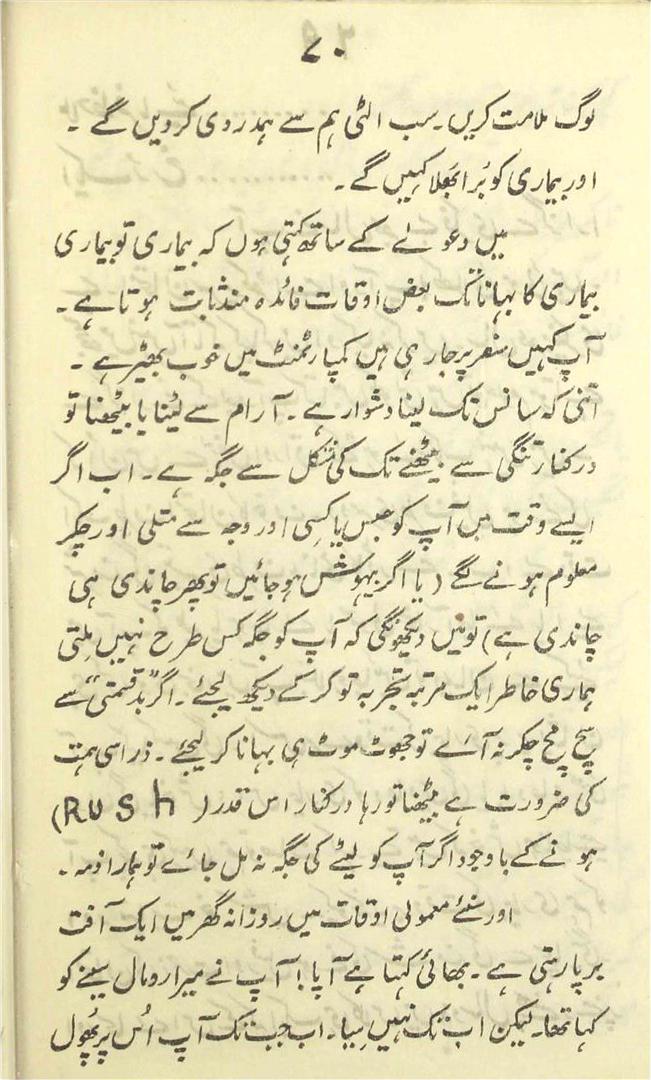 ۷۰
لوگ ملامت کریں۔ سب الٹی ہم سے ہمدردی کر دیں گے ۔
اور بیماری کو بُرا بھَلا کہیں گے ۔
میں دعوے کے ساتھ کہتی ہوں کہ بیماری تو بیماری
بیماری کا بہانا تک بعض اوقات فائدہ مند ثابت ہوتا ہے ۔
آپ کہیں سفر پر جا رہی ہیں کمپارٹمنٹ میں خوب بھیڑ ہے ۔
اتنی کہ سانس تک لینا دشوار ہے ۔ آرام سے لیٹنا یا بیٹھنا تو
درکنار تنگی سے بیٹھنے تک کی مشکل سے جگہ ہے ۔ اب اگر
ایسے وقت میں آپ کو حبس یا کسِی اور وجہ سے متلی اور چکر
معلوم ہونے لگے (یا اگر بیہوش ہو جائیں تو پھر چاندی ہی
چاندی ہے) تو میں دیکھونگی کہ آپ کو جگہ کس طرح نہیں مِلتی
ہماری خاطر ایک مرتبہ تجربہ تو کر کے دیکھ لیجئے ۔ اگر ”بدقسمتی“ سے
سچ مچ چکر نہ آئے تو جھوٹ موٹ ہی بہانا کر لیجئے ۔ ذرا سی ہمت
کی ضرورت ہے بیٹھنا تو رہا درکنار اس قدر (RUSh)
ہونے کے باوجود اگر آپ کو لیٹنے کی جگہ نہ مل جائے تو ہمارا ذمہ ۔
اور سنئے معمولی اوقات میں روزانہ گھر میں ایک آفت
برپا رہتی ہے ۔ بھائی کہتا ہے آپا! آپ نے میرا رومال سینے کو
کہا تھا۔ لیکن اب تک نہیں سِیا۔ اب جب تک آپ اُس پر پھُول